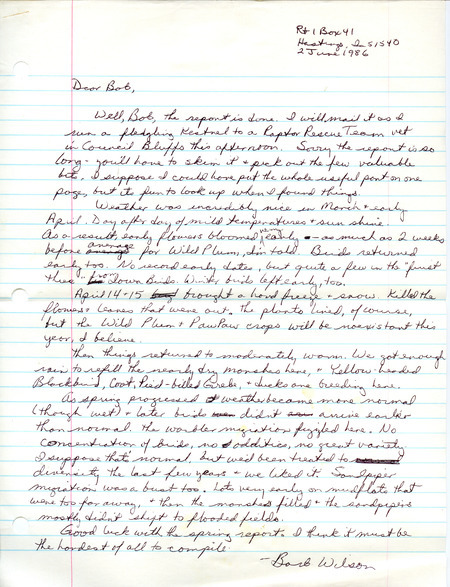 Rt 1 Box 41
Hastings, Ia 51540
2 June 1986
Dear Bob,
Well, Bob, the report is done. I will mail it as I
run a fledgling Kestrel to a Raptor Rescue Team vet
in Council Bluffs this afternoon. Sorry the report is so
long - you'll have to skim it + pick out the few valuable
bits. I suppose I could have put the whole useful part on one
page, but its fun to look up when I found things.
Weather was incredibly nice in March + early
April. Day after day of mild temperatures + sun shine.
As a result, early flowers bloomed very early - as much as 2 weeks
before average for Wild Plum, I'm told. Birds returned
early, too. No record early dates, but quite a few in the "first
three" for Iowa Birds. Winter birds left early, too.
April 14-15 brought a hard freeze + snow. Killed the
flowers + leaves that were out. The plants lived, of course,
but the Wild Plum + PawPaw crops will be nonexistant this
year, I believe.
Then things returned to moderately warm. We got enough
rain to refill the nearly dry marshes here, + Yellow-headed
Blackbird, Coot, Pied-billed Grebe, + ducks are breeding here.
As spring progressed weather became more normal
(though wet) + later birds didn't arrive earlier
than normal. The warbler migration fizzled here. No
concentration of birds, no oddities, no great variety.
I suppose that's normal, but we'd been treated to
diversity the last few years + we liked it. Sandpiper
migration was a bust too. Lots very early on mudflats that
were too far away, + then the marshes filled + the sandpipers
mostly didn't shift to flooded fields.
Good luck with the spring report. I think it must be
the hardest of all to compile.
- Barb Wilson